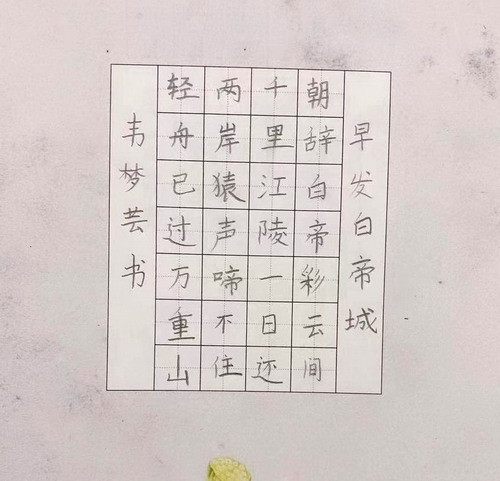 早发白帝城
朝辞白帝彩云间
千里江陵一日还
两岸猿声啼不住
轻舟已过万重山
韦梦芸书